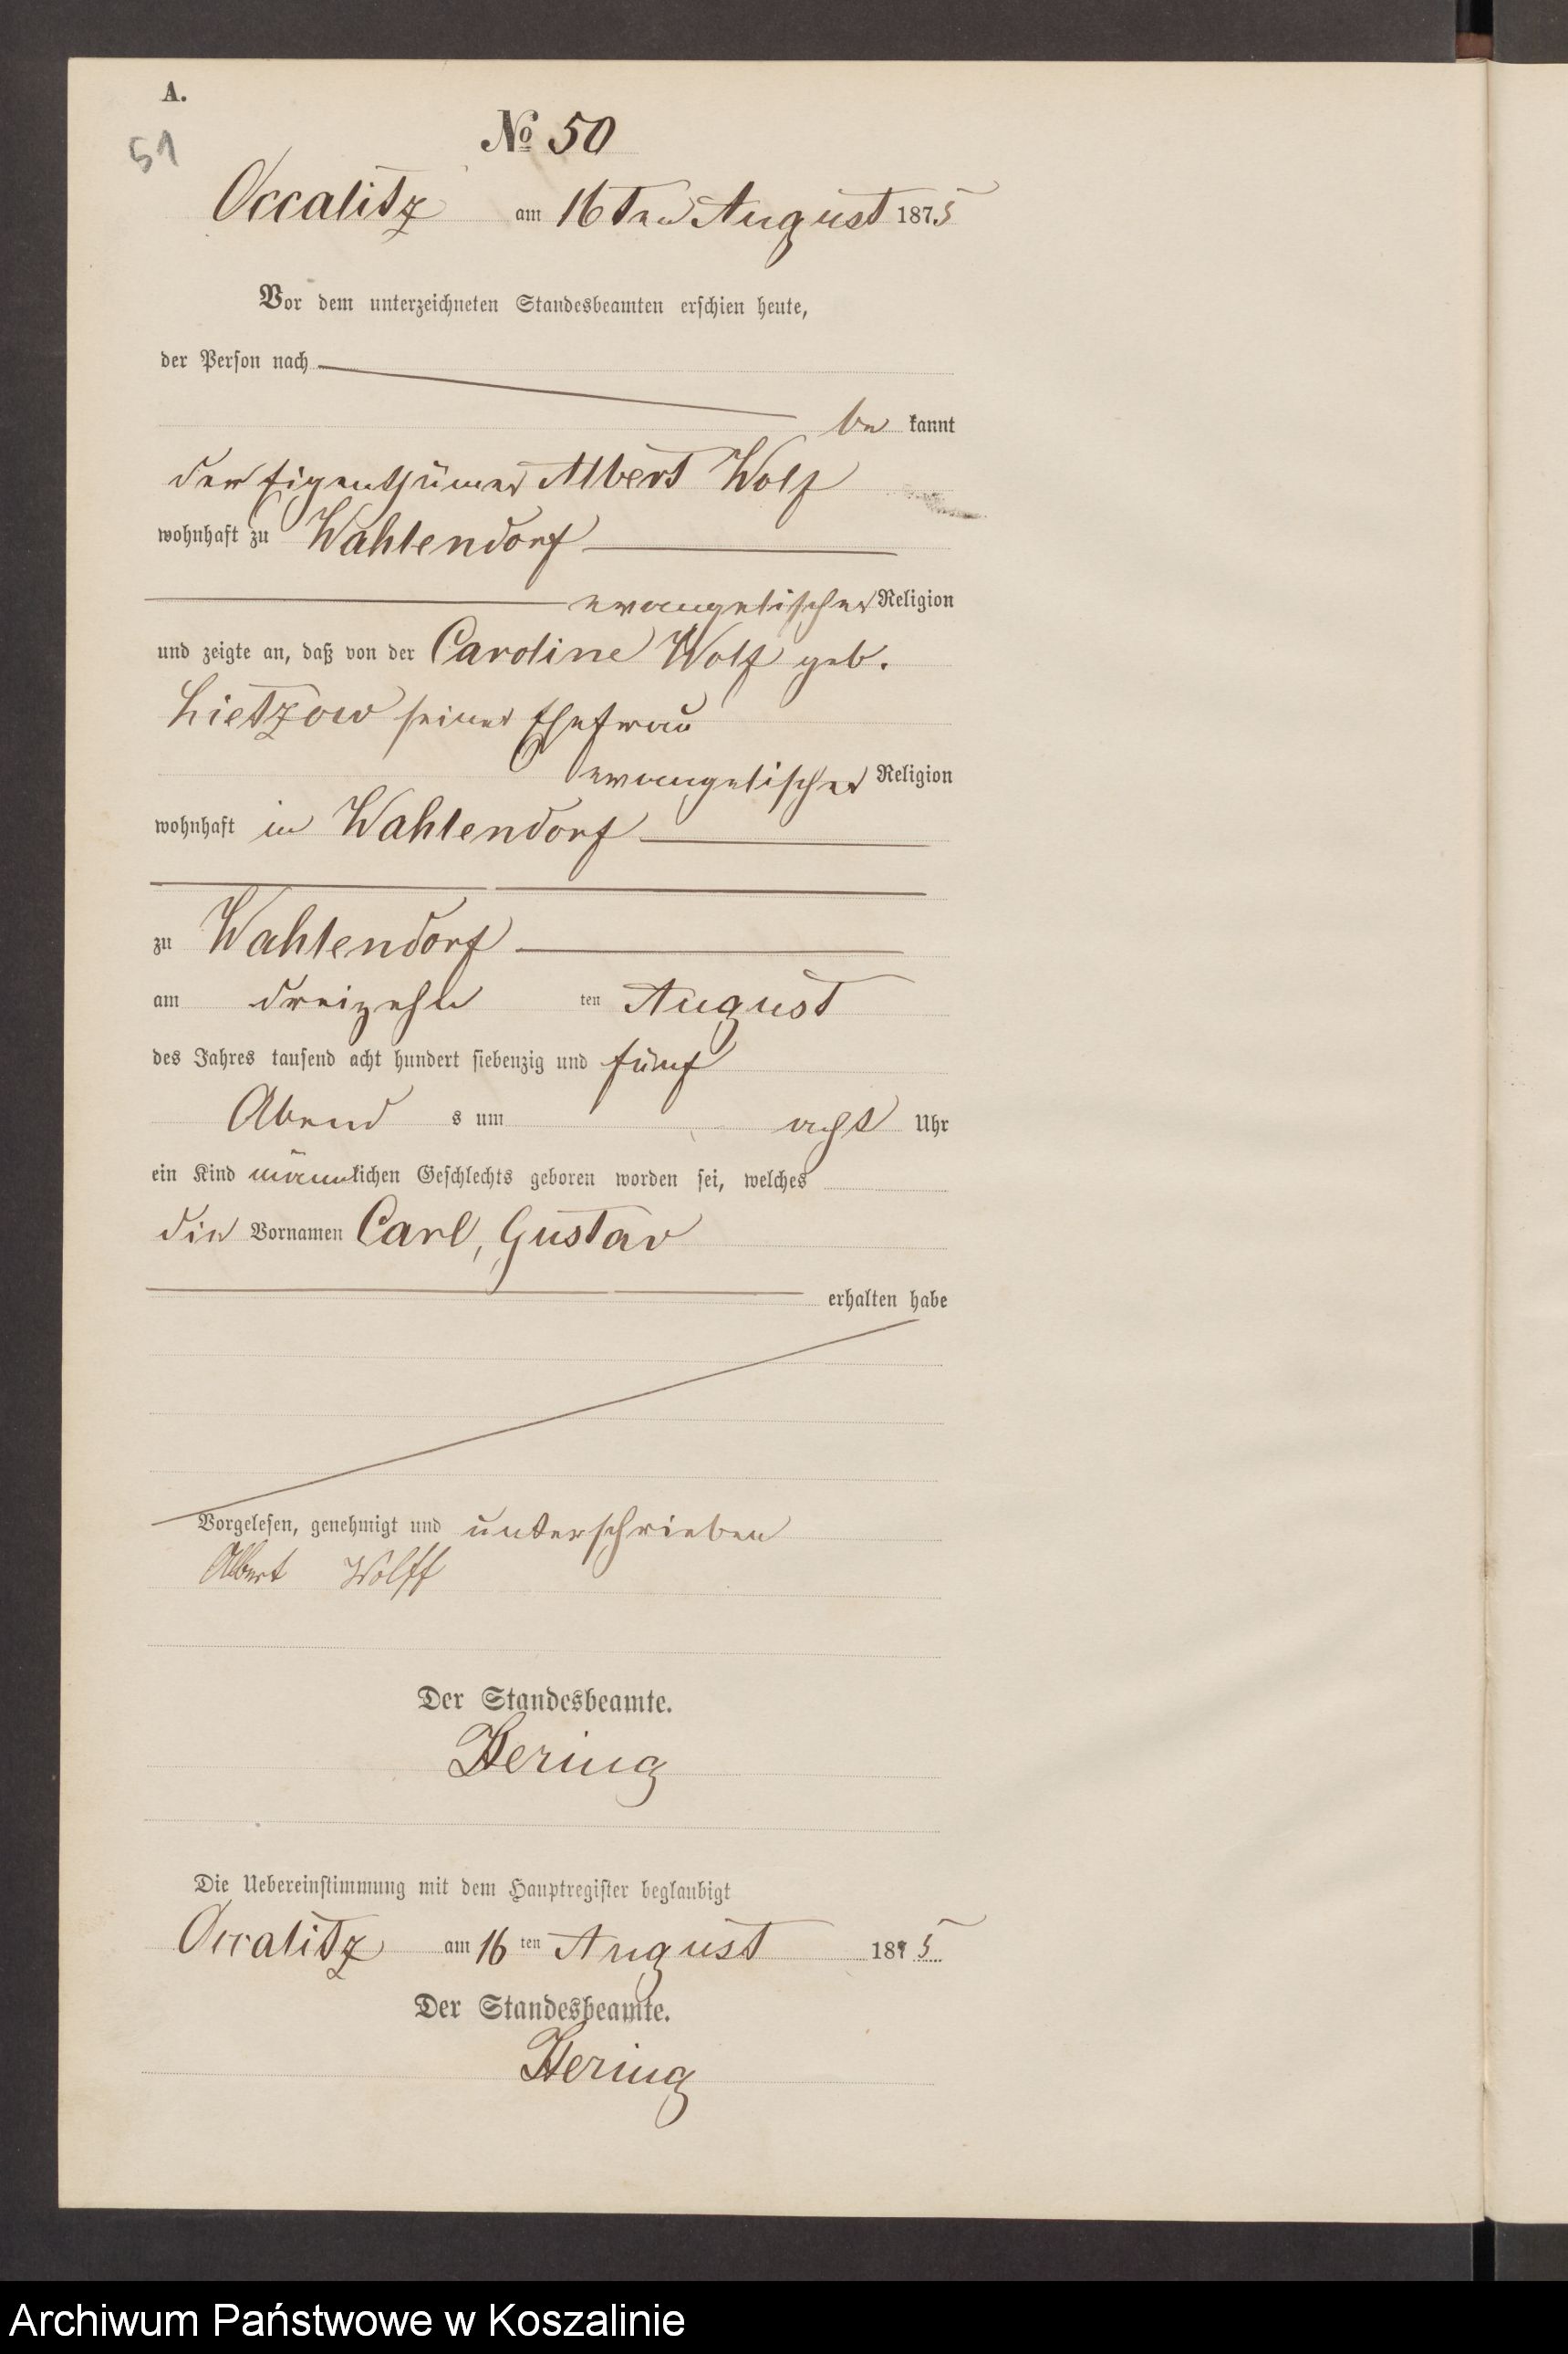 A.
51
№ 50
Occalitz am 16ten August 1875
Vor dem unterzeichneten Standesbeamten erschien heute,
der Person nach
be kannt
der Eigenthümer Albert Wolf
wohnhaft zu Wahlendorf
evangelischer Religion
und zeigte an, daß von der Caroline Wolf geb.
Lietzow seiner Ehefrau
evangelischer Religion
wohnhaft in Wahlendorf
zu Wahlendorf
am dreizehn ten August
des Jahres tausend acht hundert siebenzig und fünf
Abend s um acht Uhr
ein Kind männlichen Geschlechts geboren worden sei, welches
die Vornamen Carl, Gustav
erhalten habe
Vorgelesen, genehmigt und unterschrieben
Albert Wolff
Der Standesbeamte.
Hering
Die Uebereinstimmung mit dem Hauptregister beglaubigt
Occalitz am 16 ten August 1875
Der Standesbeamte.
Hering
Archiwum Państwowe w Koszalinie